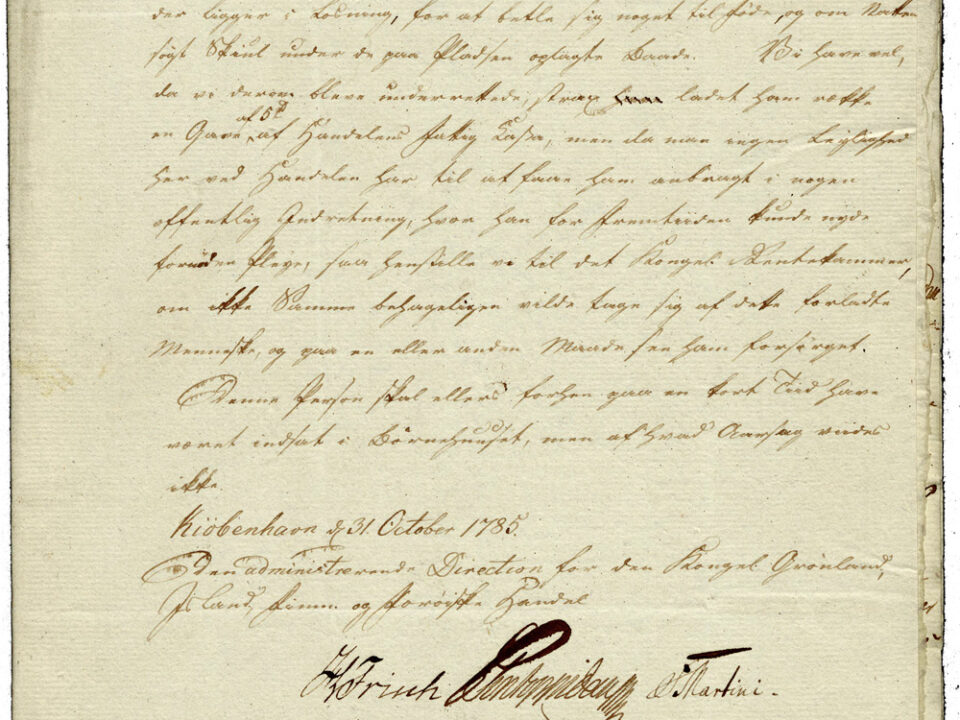 der ligger i Losning, for at betle sig noget til Föde, og om Natten
søgt Skiul under de paa Pladsen oplagte Baade. Vi have vel,
da vi derom bleve underrettede, strax ham ladet ham række
en Gave af 5 rd af Handelens Fattig Casse, men da man ingen Leylighed
her ved Handelen har til at faae ham anbragt i nogen
offentlig Indretning, hvor han for Fremtiiden kunde nyde
fornöden Pleye, saa henstille vi til det Kongel. Rentekammer,
om ikke Samme behageligen vilde tage sig af dette forladte
Menneske, og paa en eller anden Maade see ham forsörget.
Denne Person skal ellers forhen paa en kort Tiid have
været indsat i Börnehuuset, men af hvad Aarsag viides
ikke.
Kiöbenhavn d. 31. October 1785.
Den administrerende Direction for den Kongel. Grönland,
Island, Finm. og Faröiske Handel
HFrisch Martini.